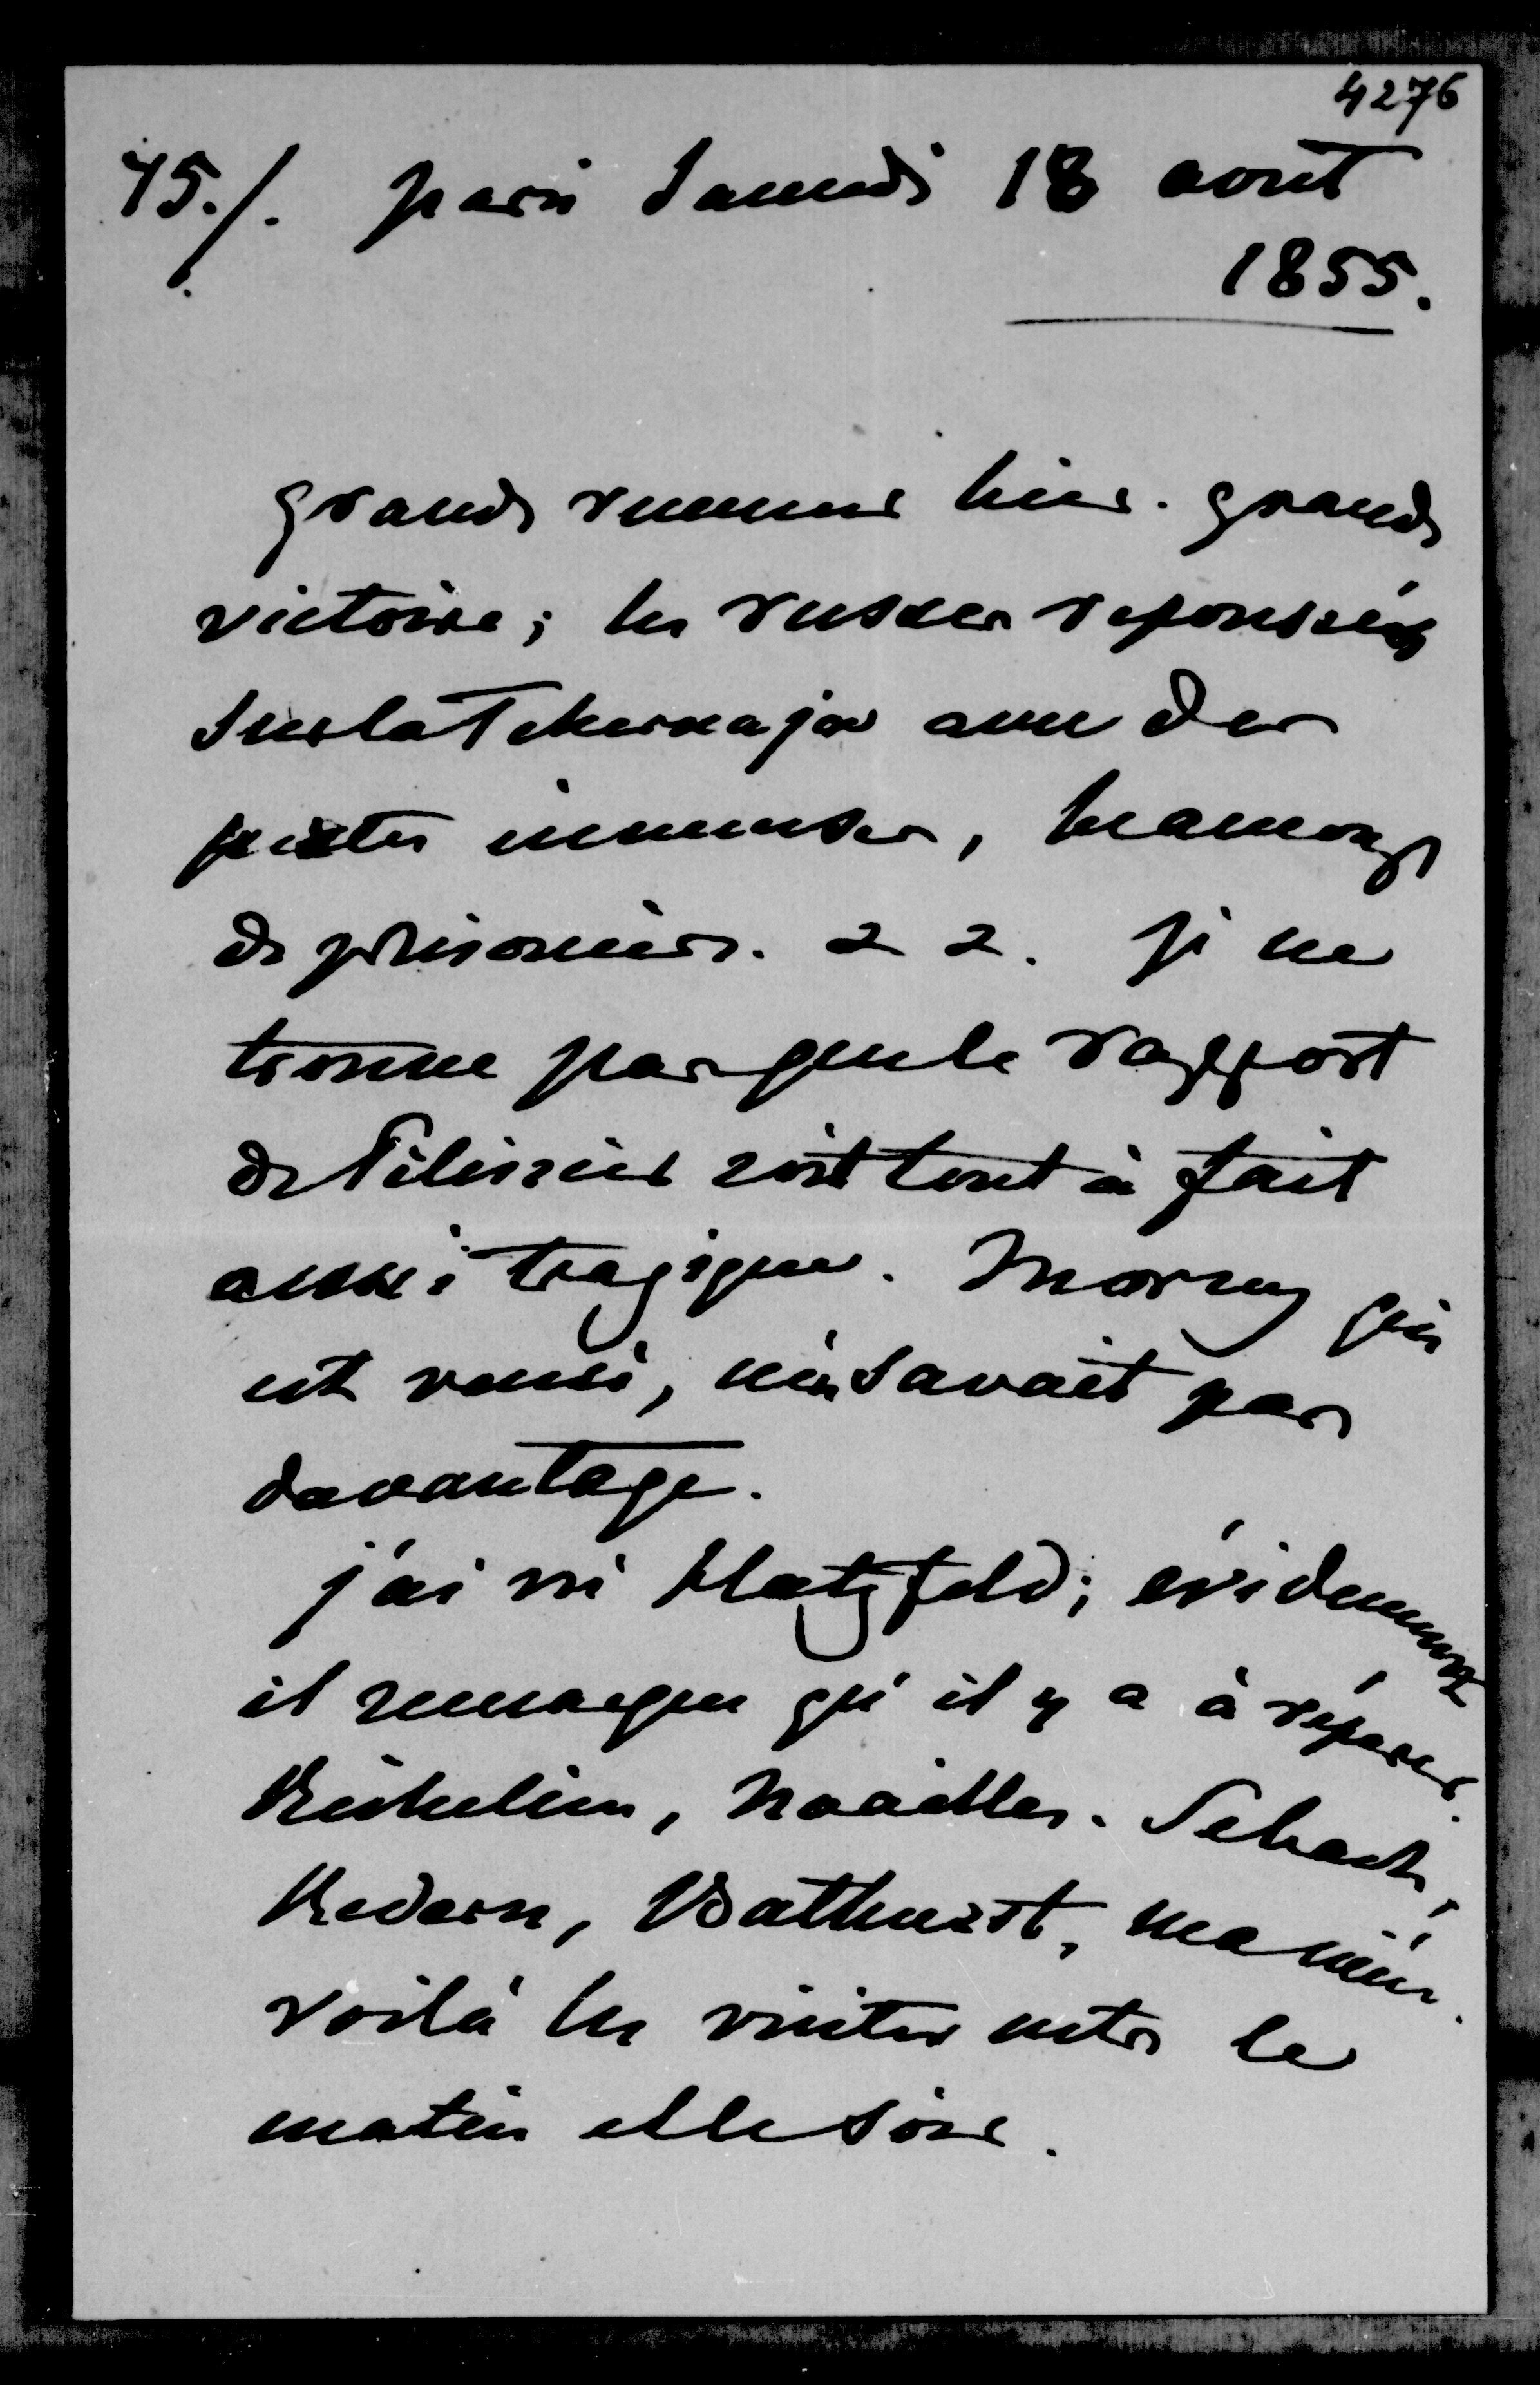 4276
45./. paris Samedi 18 aout
1855.
grande rumeur hier. grande
victoire; les russes repoussés
sur la Tchernaja avec des
pertes immenses, beaucoup
de prisoniers. 2 2. je ne
trouve pas que le rapport
de Pélissier soit tout à fait
aussi tragique. Morny qui
est venu, n'en savait pas
davantage.
j'ai vu Hatzfeld; évidemment
il remarque qu'il y a à réparer.
Richelieu, Noailles. Sebach,
Redern, Bathurst, ma nièce.
voilà les visites entre le
matin et le soir.